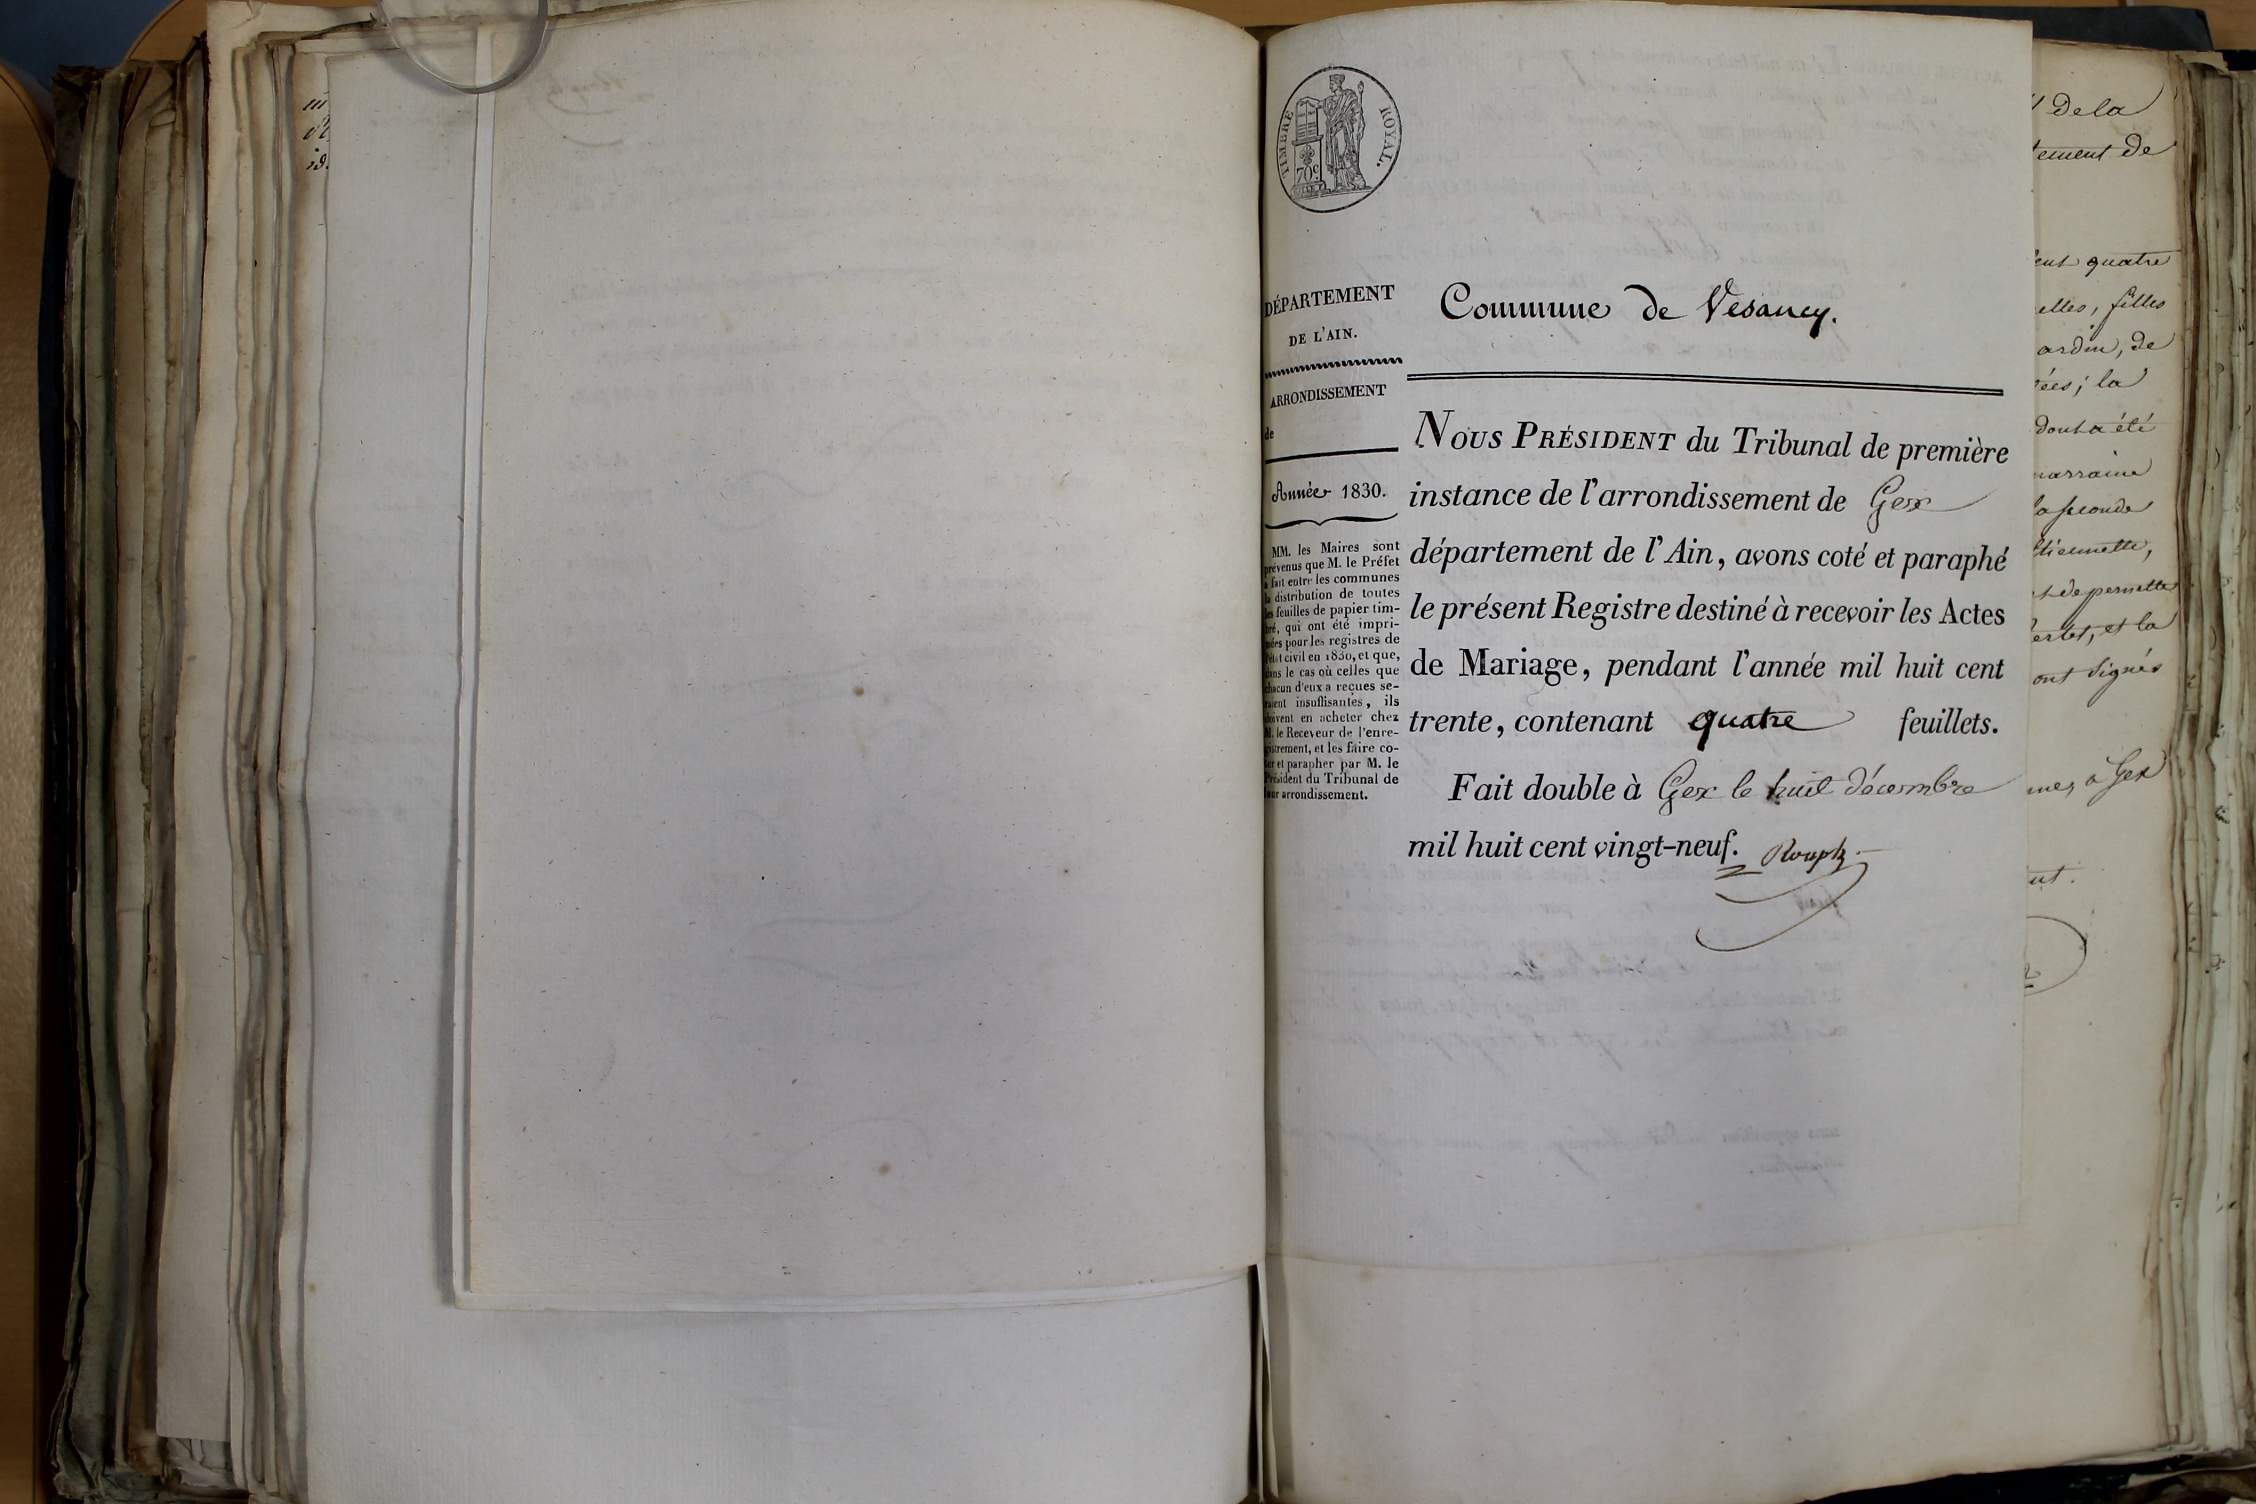 TIMBRE ROYAL.
70 c.
DÉPARTEMENT
DE L'AIN.
ARRONDISSEMENT
de
Année 1830.
MM. les Maires sont
prévenus que M. le Préfet
a fait entre les communes
la distribution de toutes
les feuilles de papier tim-
bré, qui ont été impri-
mées pour les registres de
l'état civil en 1830, et que,
dans le cas où celles que
chacun d'eux a reçues se-
raient insuffisantes, ils
doivent en acheter chez
M. le Receveur de l'enre-
gistrement, et les faire co-
ter et parapher par M. le
Président du Tribunal de
leur arrondissement.
Commune de Vesancy.
NOUS PRÉSIDENT du Tribunal de première
instance de l'arrondissement de Gex
département de l'Ain, avons coté et paraphé
le présent Registre destiné à recevoir les Actes
de Mariage, pendant l'année mil huit cent
trente, contenant quatre feuillets.
Fait double à Gex le huit décembre
mil huit cent vingt-neuf.
de la
tement de
quatre
elles, filles
ardin, de
la
dont a été
marraine
la seconde
et la
ont signés
à Gex